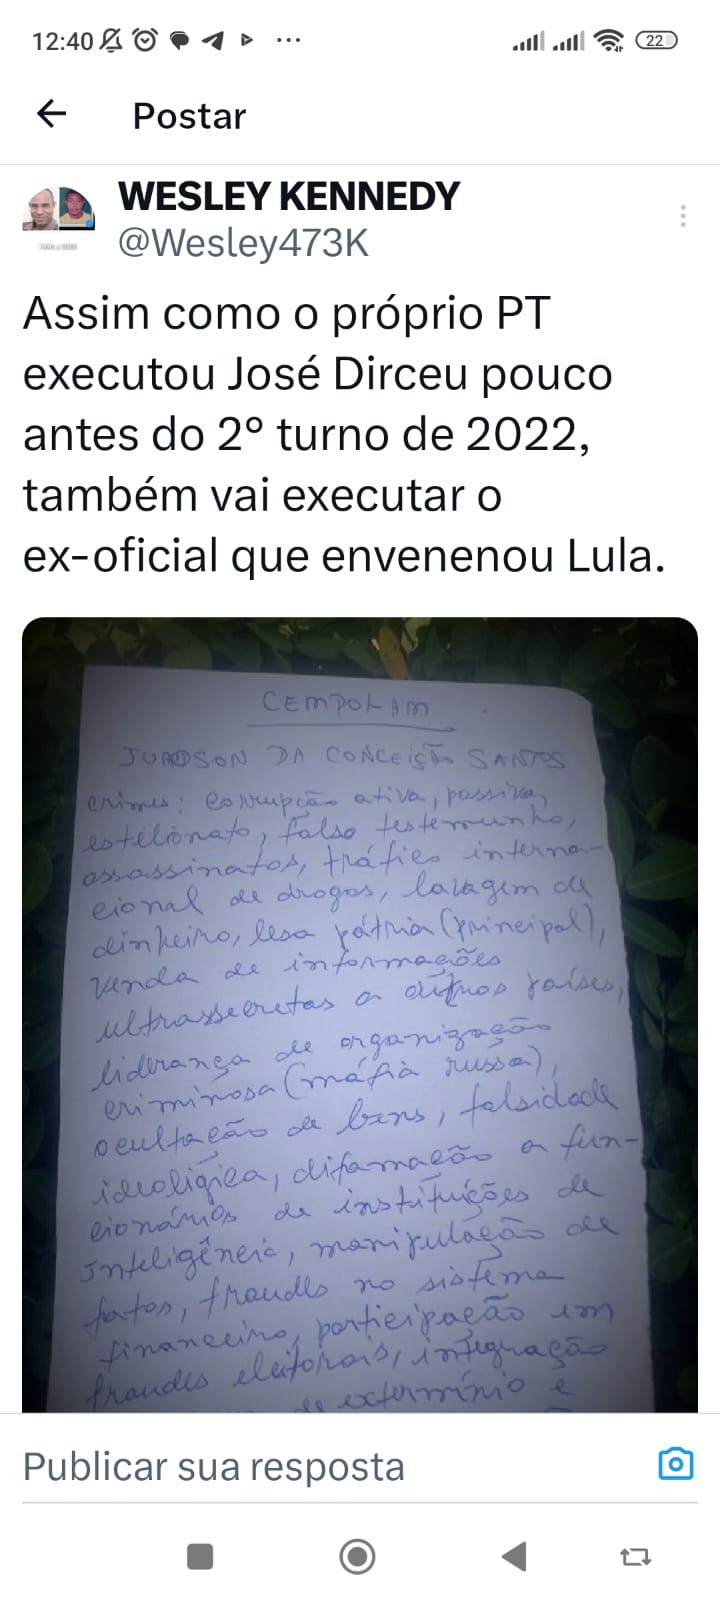 12:40
22
Postar
WESLEY KENNEDY
@Wesley473K
Assim como o próprio PT
executou José Dirceu pouco
antes do 2° turno de 2022,
também vai executar o
ex-oficial que envenenou Lula.
CEMPOLAM
JUARDSON DA CONCEIÇÃO SANTOS
crimes: corrupção ativa, passiva,
estelionato, falso testemunho,
assassinatos, tráfico interna-
cional de drogas, lavagem de
dinheiro, lesa pátria (principal),
venda de informações
ultrassecretas a outros países,
liderança de organização
criminosa (máfia russa),
ocultação de bens, falsidade
ideológica, difamação a fun-
cionários de instituições de
Inteligência, manipulação de
fatos, fraudes no sistema
financeiro, participação em
fraudes eleitorais, integração
de extermínio e
Publicar sua resposta